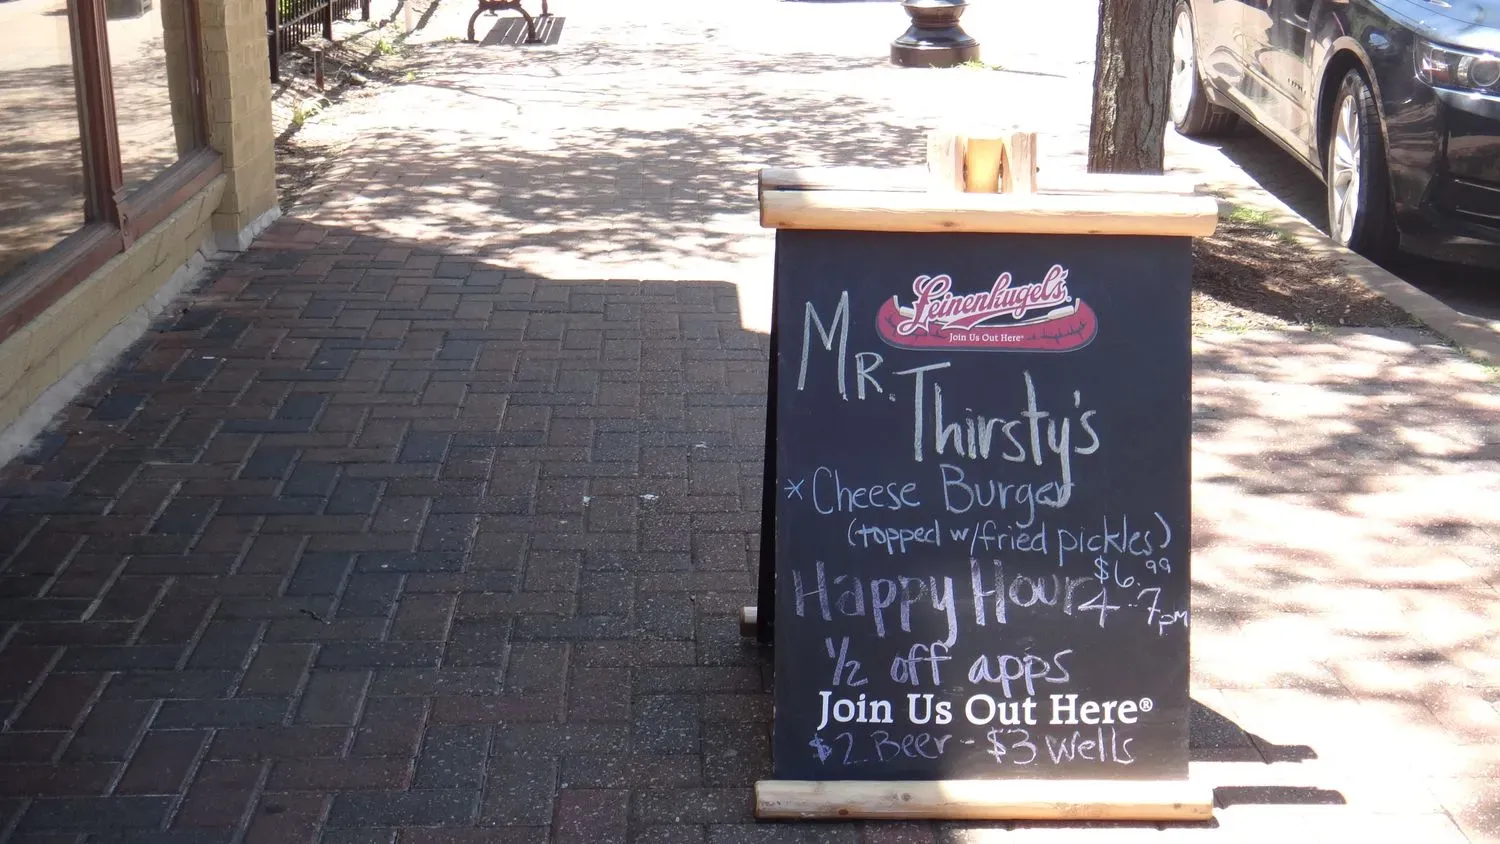 Leinenkugel's
Join Us Out Here®
Mr. Thirsty's
* Cheese Burger
(topped w/fried pickles)
$6.99
Happy Hour 4-7pm
1/2 off apps
Join Us Out Here®
$2 Beer - $3 Wells